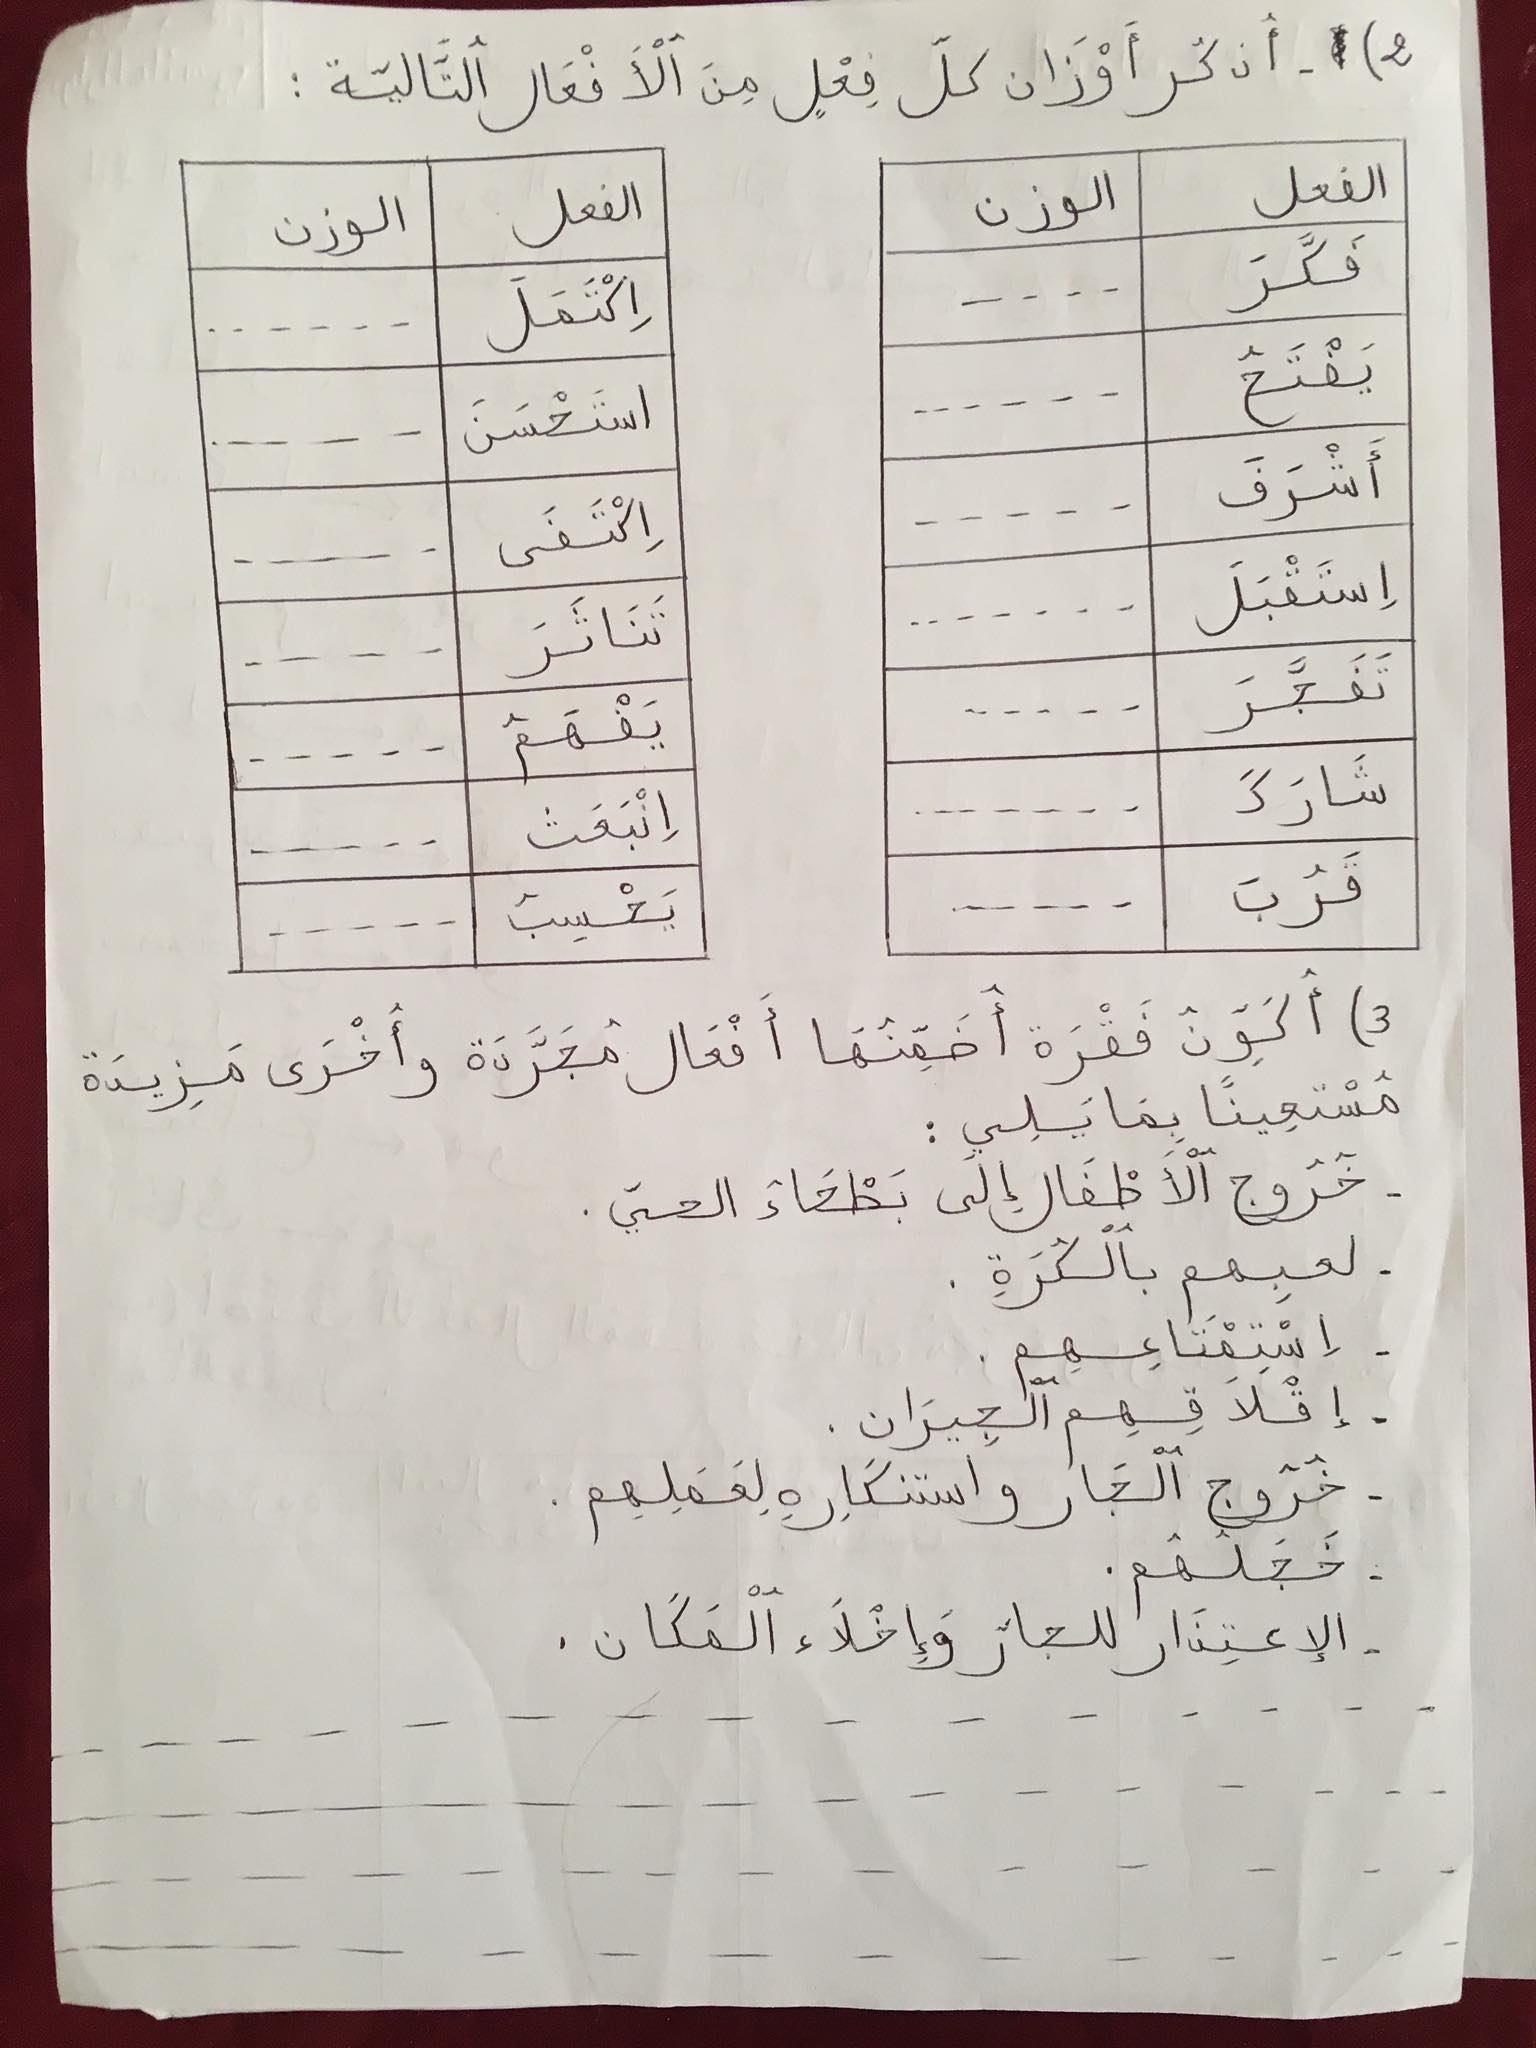 2) - أذكُر أَوْزَان كلّ فِعْلٍ مِنَ ٱلْأَفْعَال ٱلتَّاليّة :
الفعل الوزن
فَكَّرَ
يَفْتَحُ
أَشْرَفَ
اِسْتَقْبَلَ
تَفَجَّرَ
شَارَكَ
قَرُبَ
الفعل الوزن
اِكْتَمَلَ
استَحْسَنَ
اِكْتَفَى
تَنَاثَرَ
يَفْهَمُ
اِنْبَعَثَ
يَحْسِبُ
3) أُكَوِّنُ فَقْرَة أُضَمِّنُهَا أَفْعَال مُجَرَّدَة وأُخْرَى مَزِيدَة
مُسْتعِينًا بِمَا يَلِي :
- خُرُوج ٱلْأَطْفَال إِلَى بَطْحَاءَ الحيّ .
- لعبِهم بٱلْكُرَةِ .
- اِسْتِمْتَاعِهِم .
- إقْلَاقِهِم ٱلْجِيرَان .
- خُرُوج ٱلْجَار واستنكَارِهِ لِعَمَلِهِم .
- خَجَلُهُم .
- الإعتِذَار للجار وَإِخْلَاء ٱلْمَكَان .